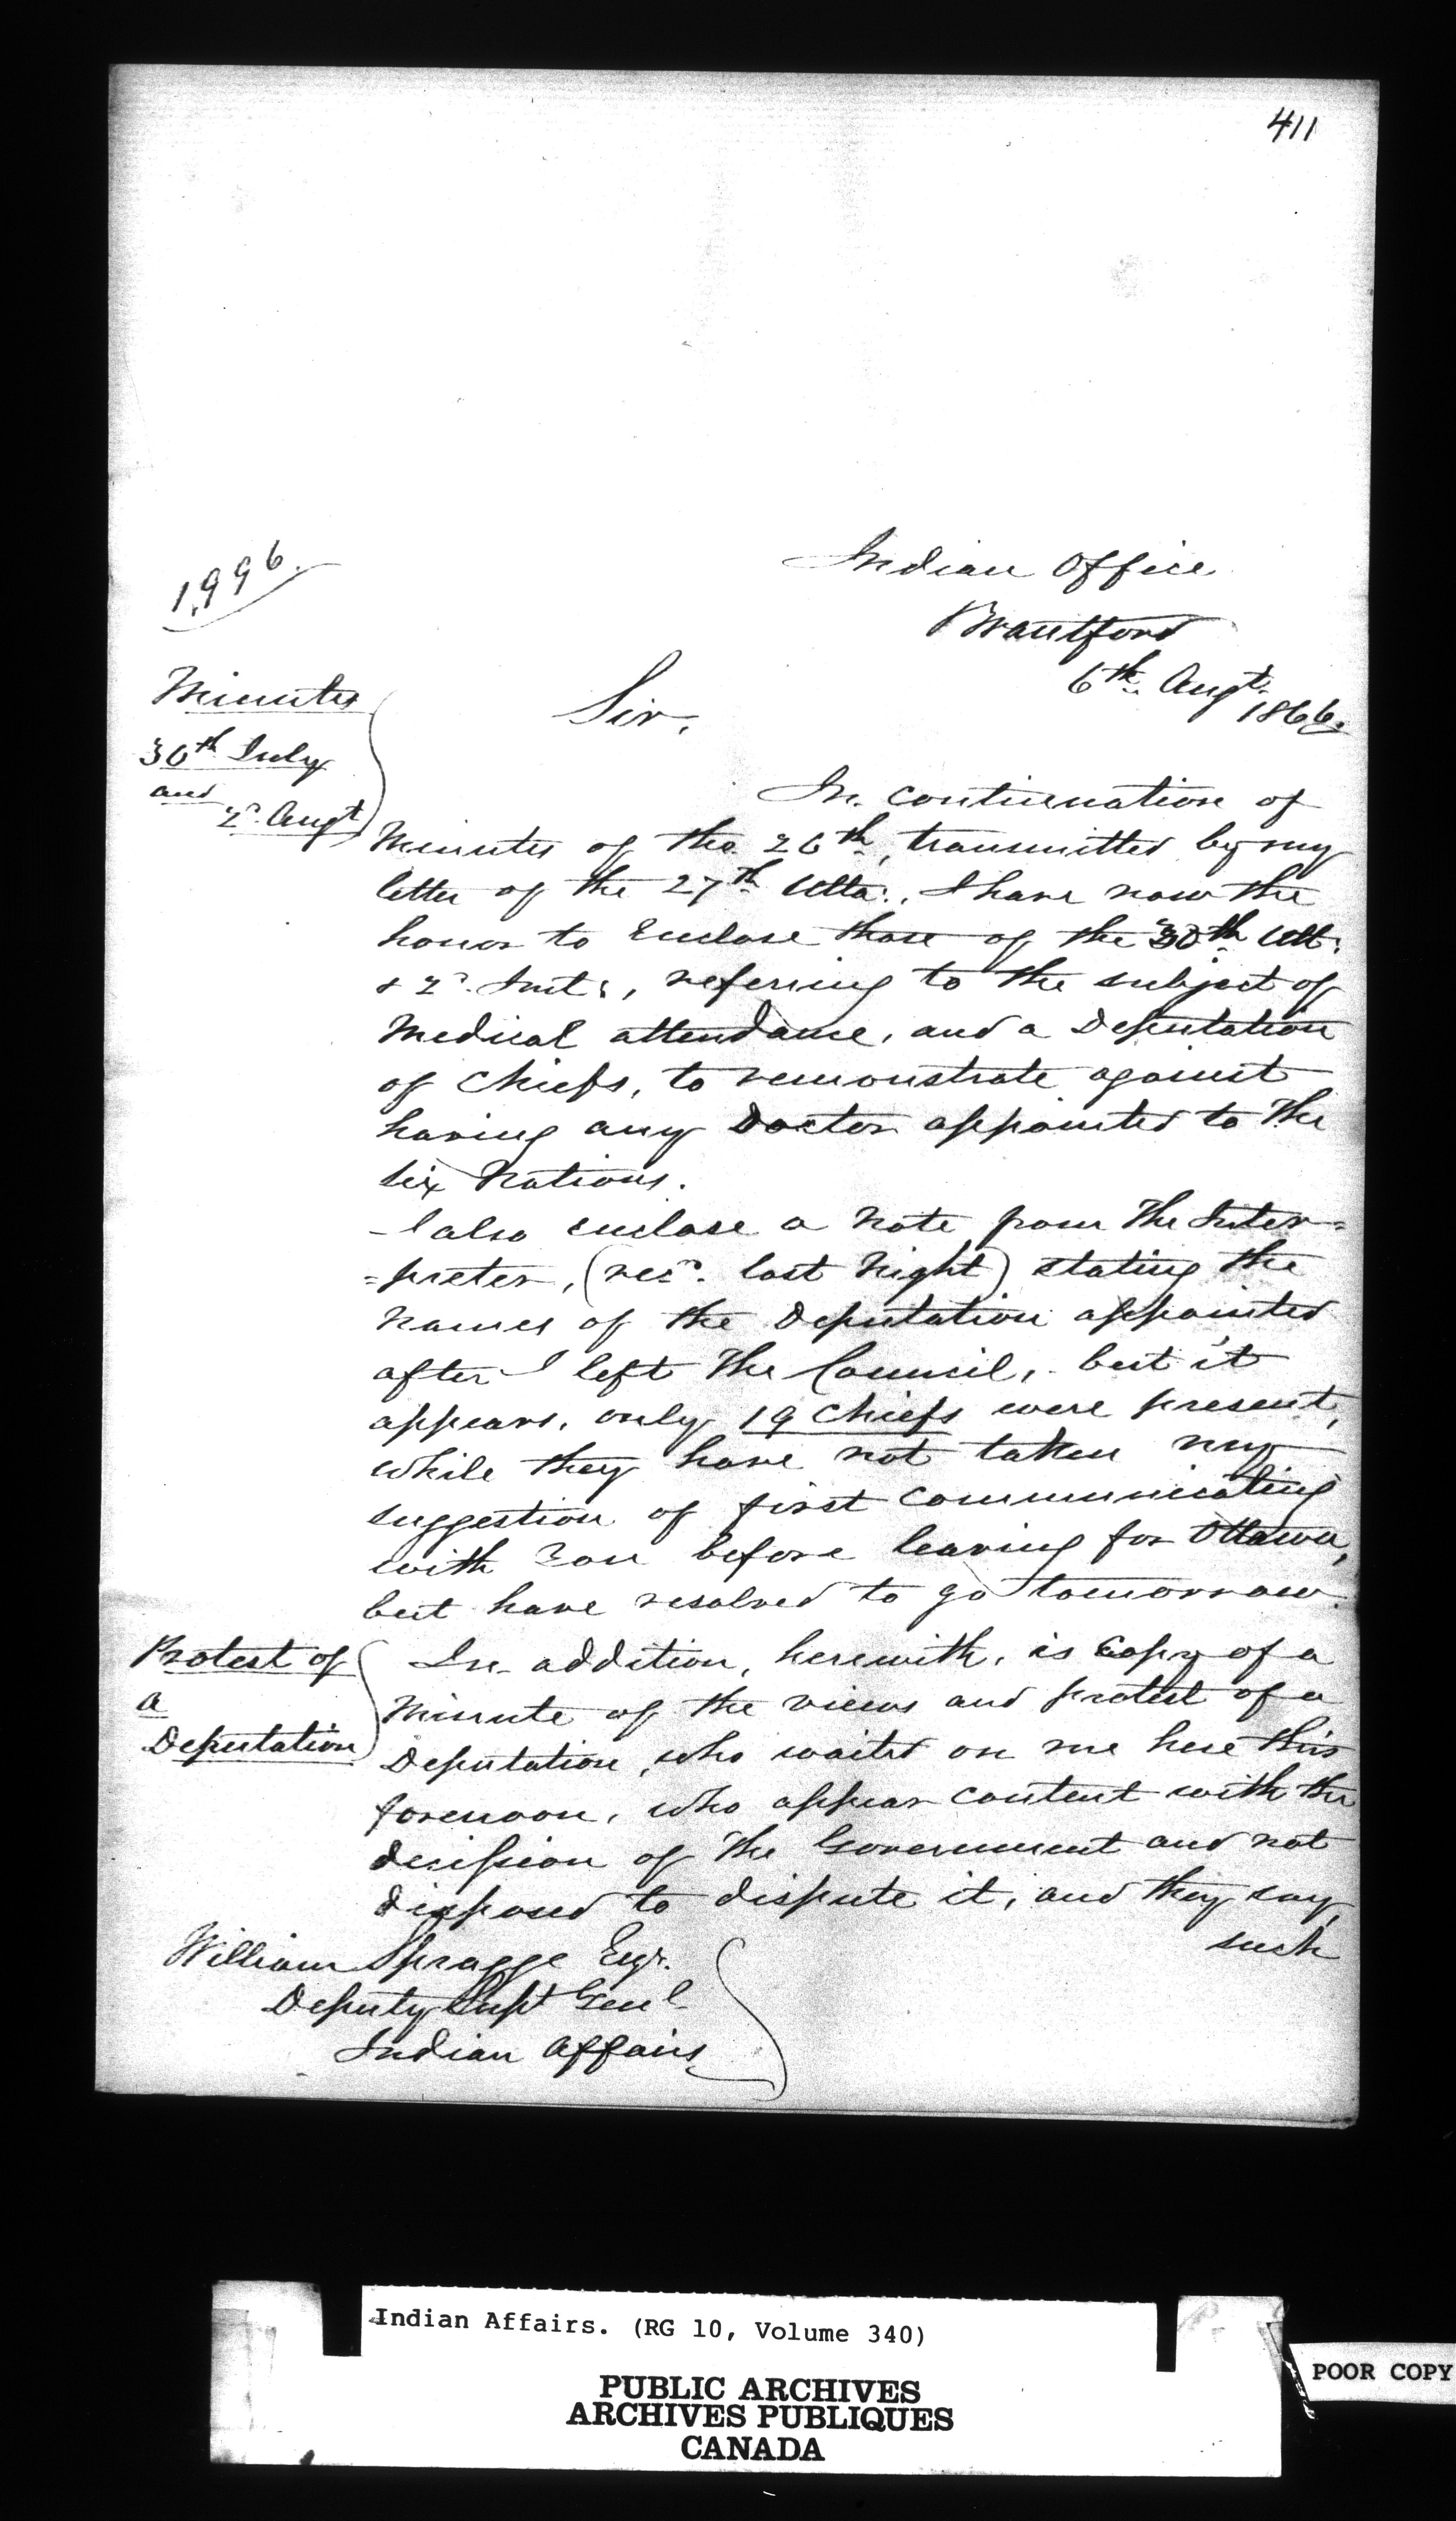 411
Indian Office
Brantford
6th Augt.
1866.
1,996.
Minutes
30th July
and
2d. Augt
Sir,
In continuation of
Minutes of the 26th, transmitted by my
letter of the 27th Ulto:, I have now the
honor to Enclose those of the 30th Ult:
& 2d. Inst:, referring to the subject of
Medical attendance, and a Deputation
of Chiefs, to remonstrate against
having any Doctor appointed to the
Six Nations.
- I also enclose a note from the Inter=
=preter, (recd. last Night) stating the
names of the Deputation appointed
after I left the Council, but it
appears, only 19 Chiefs were present,
while they have not taken my
suggestion of first communicating
with You before leaving for Ottawa,
but have resolved to go tomorrow.
Protest of
a
Deputation
In addition, herewith, is Copy of a
Minute of the views and protest of a
Deputation, who waited on me here this
forenoon, who appear content with the
decision of the Government and not
disposed to dispute it, and they say
such
William Spragge Esqr.
Deputy Supt Genl
Indian Affairs
Indian Affairs. (RG 10, Volume 340)
PUBLIC ARCHIVES
ARCHIVES PUBLIQUES
CANADA
POOR COPY